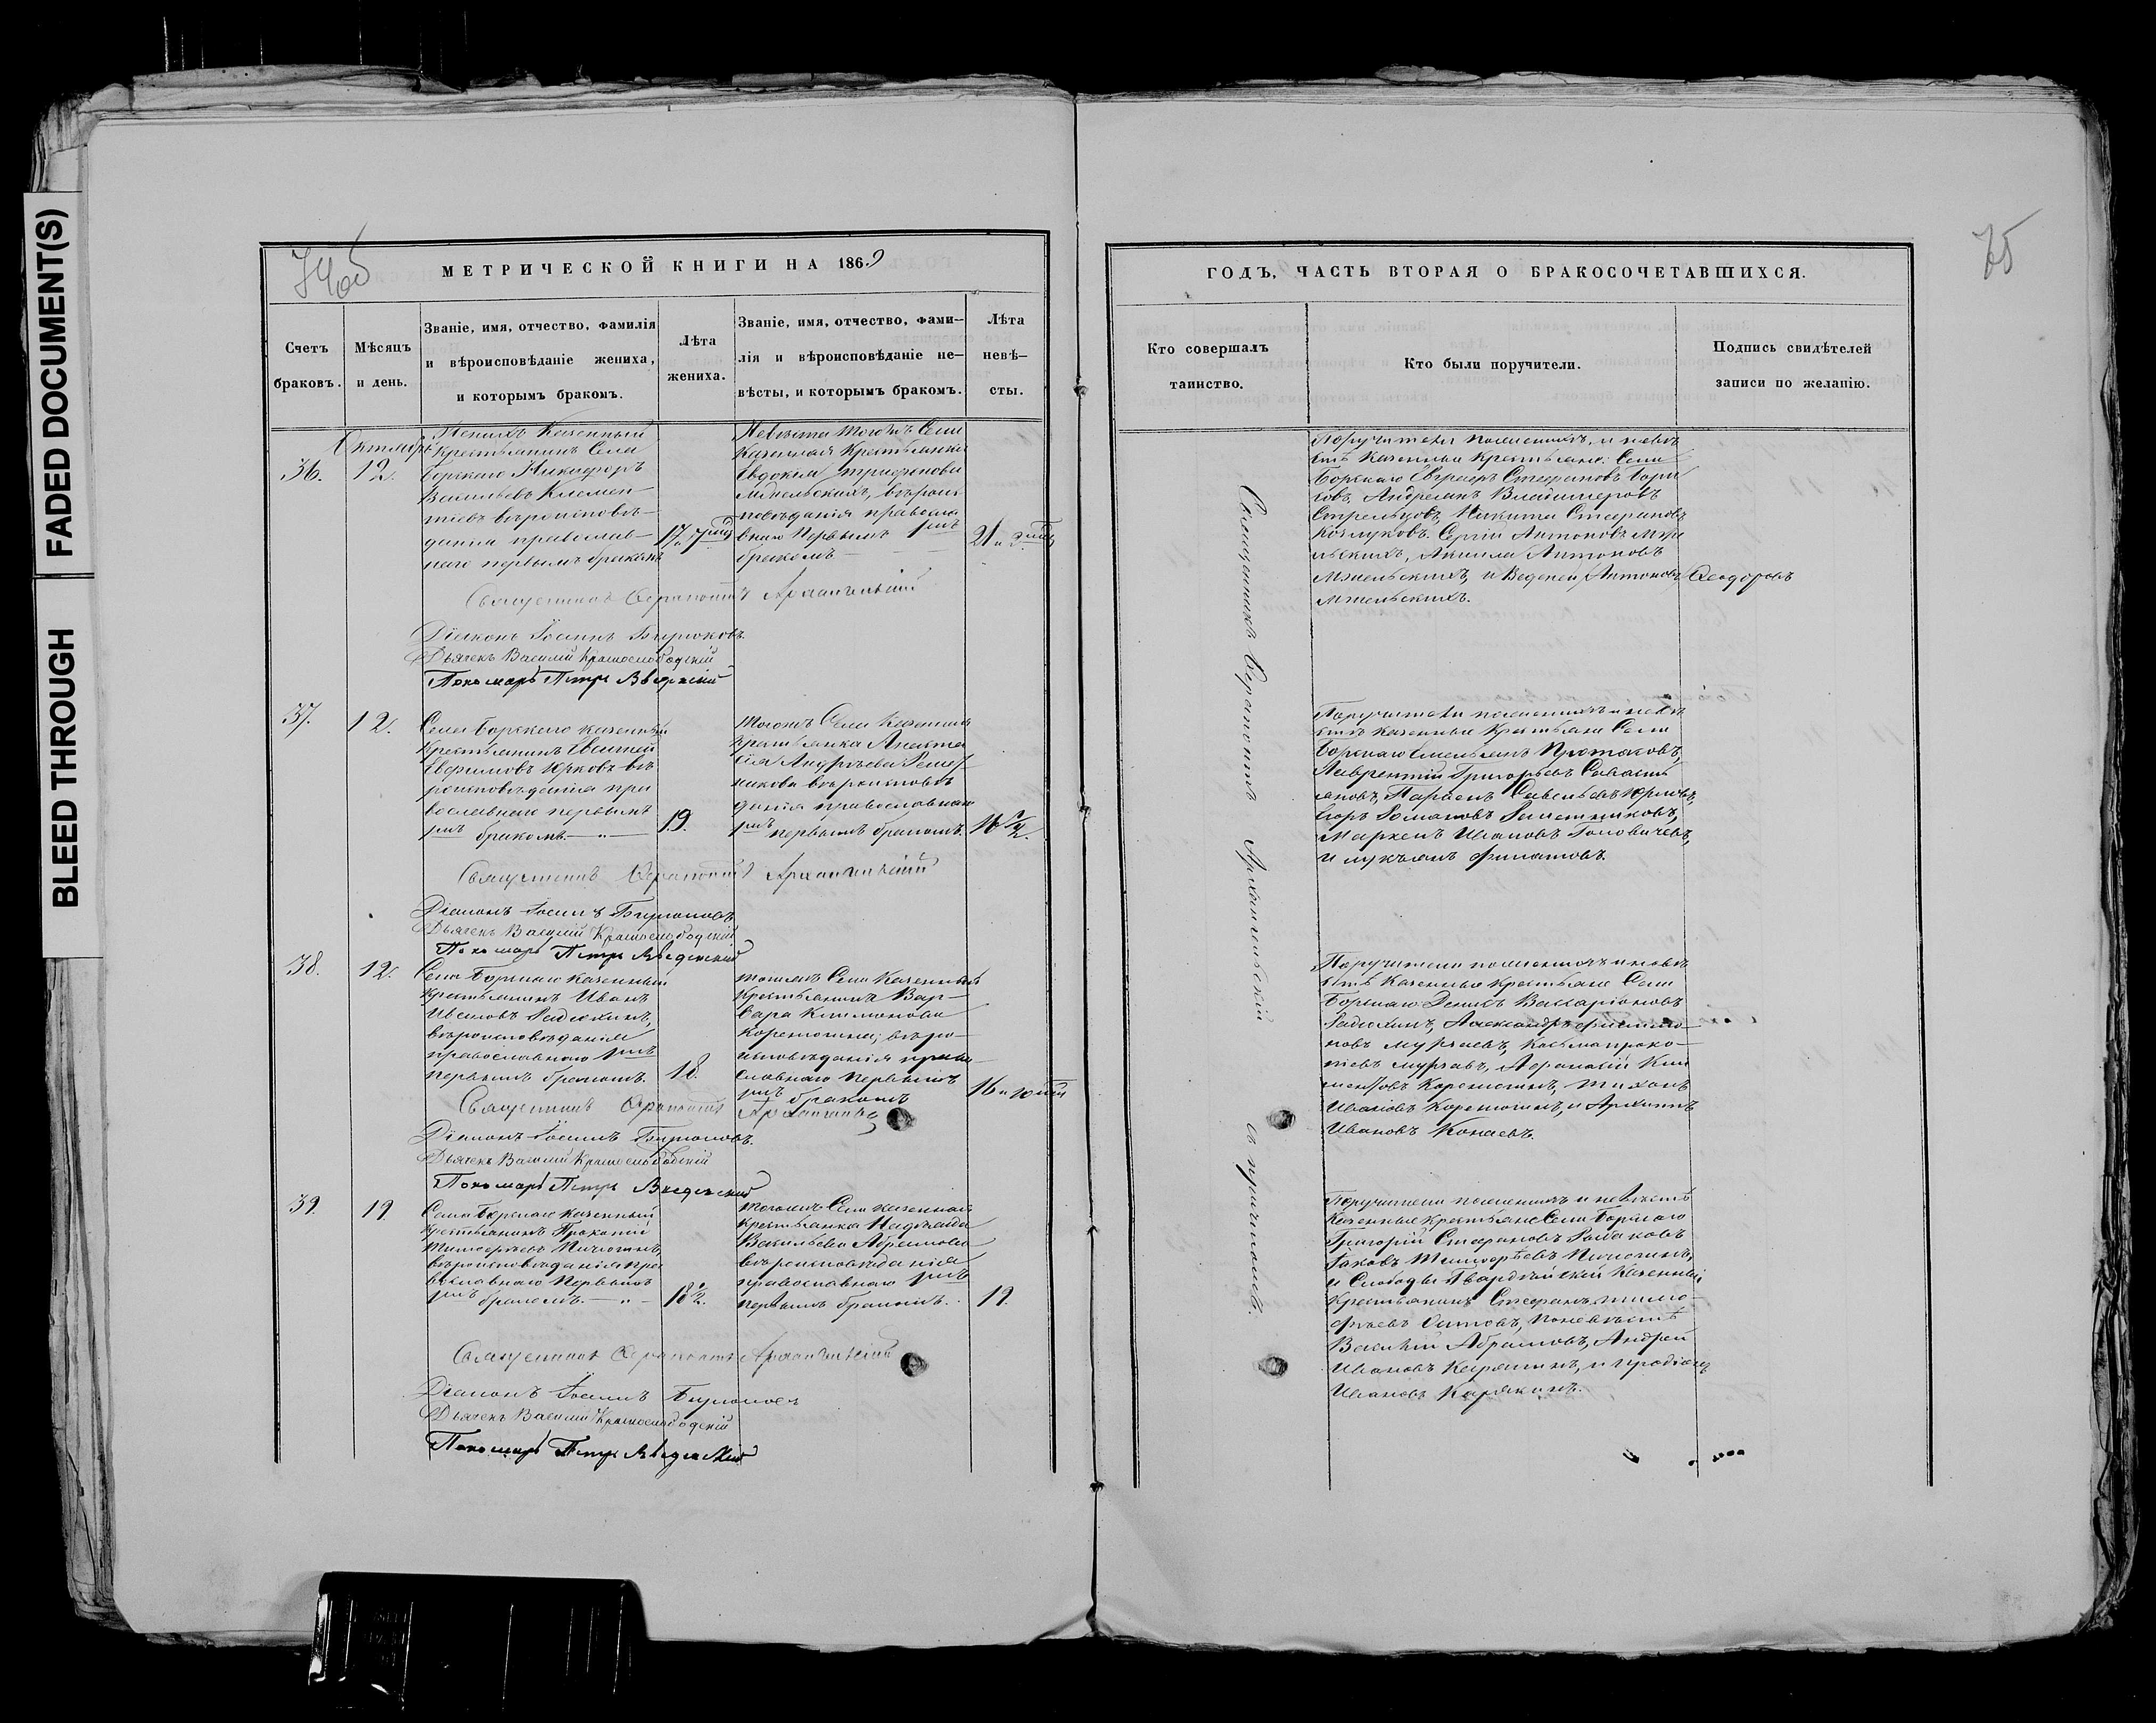 FADED DOCUMENT(S)
BLEED THROUGH
74об
МЕТРИЧЕСКОЙ КНИГИ НА 1869
Счетъ браковъ.
Мѣсяцъ и день.
Званіе, имя, отчество, фамилія
и вѣроисповѣданіе жениха,
и которымъ бракомъ.
Лѣта жениха.
Званіе, имя, отчество, фами—
лія и вѣроисповѣданіе не—
вѣсты, и которымъ бракомъ.
Лѣта невѣ—
сты.
36.
Октябрь
12.
Женихъ Казенный
Крестьянинъ Села
Борскаго Никифоръ
Васильевъ Клемен—
тіевъ вѣроисповѣ—
данія православ—
наго первымъ бракомъ
17 и 7
Невѣста тогожъ Села
Казенная Крестьянка
Евдокія Трифонова
вѣроис
повѣданія правосла
внаго первымъ
бракомъ
21 и 3
Священникъ Серапіонъ Архангельскій
Діаконъ Іоаннъ Бирюковъ.
Дьячекъ Василій Краснослободскій
Пономарь Петръ Введенскій
37.
12.
Села Борскаго казенный
Крестьянинъ
Евфимовъ Юрковъ вѣ
роисповѣданія пра
вославнаго первымъ
бракомъ. — " —
19.
тогожъ Села Казенная
Крестьянка Анаста
сія Андреева
никова вѣроисповѣ
данія православнаго
первымъ бракомъ.
16 1/2.
Священникъ Серапіонъ Архангельскій
Діаконъ Іоаннъ Бирюковъ
Дьячекъ Василій Краснослободскій
Пономарь Петръ Введенскій
38.
12.
Села Борскаго Казенный
Крестьянинъ Иванъ
Ивановъ Радюхинъ,
вѣроисповѣданія
православнаго
первымъ бракомъ.
18.
тогожъ Села Казенная
Крестьянка Вар—
вара Климонова
вѣро—
исповѣданія право
славнаго первымъ
бракомъ
16 и 10
Священникъ Серапіонъ Архангельс
Діаконъ Іоаннъ Бирюковъ.
Дьячекъ Василій Краснослободскій
Пономарь Петръ Введенскій
39.
19.
Села Борскаго Казенный
Крестьянинъ Прокопій
Тимофеевъ Пичюгинъ,
вѣроисповѣданія пра
вославнаго первымъ
бракомъ. — " —
18 1/2.
тогожъ Села казенная
крестьянка Надежда
Васильева Абрамова
вѣроисповѣданія
православнаго
первымъ бракомъ.
19.
Священникъ Серапіонъ Архангельскій
Діаконъ Іоаннъ Бирюковъ
Дьячекъ Василій Краснослободскій
Пономарь Петръ Введенскій
75
ГОДЪ, ЧАСТЬ ВТОРАЯ О БРАКОСОЧЕТАВШИХСЯ.
Кто совершалъ
таинство.
Кто были поручители.
Подпись свидѣтелей
записи по желанію.
Священникъ Серапіонъ Архангельскій съ причтомъ.
Поручители по женихѣ, и невѣ
стѣ Казенные Крестьяне: Села
Борскаго Евграфъ Стефановъ
Андреянъ Владимеровъ
Стрельцовъ, Никита Стефановъ
Козлуковъ. Сергій Антоновъ
Антоновъ
и Веденей Антоновъ Ѳеодоровъ
Поручители по женихѣ и невѣ
стѣ казенные Крестьяне Села
Борскаго Емельянъ Протаковъ,
Лаврентій Григорьевъ Севасть
яновъ, Парфенъ Савельевъ
Егоръ Романовъ
Маркелъ Ивановъ Головачевъ,
и Лукьянъ Филатовъ.
Поручители по женихѣ и невѣ
стѣ Казенные Крестьяне Села
Борскаго Денисъ
Радюхинъ, Александръ
новъ Мурзаевъ, Козьма Проко—
піевъ Мурзаевъ, Афанасій Кли
ментовъ Тихонъ
Ивановъ и Архипъ
Ивановъ Конаевъ.
Поручители по женихѣ и невѣстѣ
Казенные крестьяне Села Борскаго
Григорій Стефановъ Рыбаковъ
Іаковъ Тимофѣевъ Пичюгинъ,
и Слободы Гвардѣйской Казенный
Крестьянинъ Стефанъ Тимо—
фѣевъ по невѣстѣ
Василій Абрамовъ, Андрей
Ивановъ Карякинъ, и Иродіонъ
Ивановъ Карякинъ.